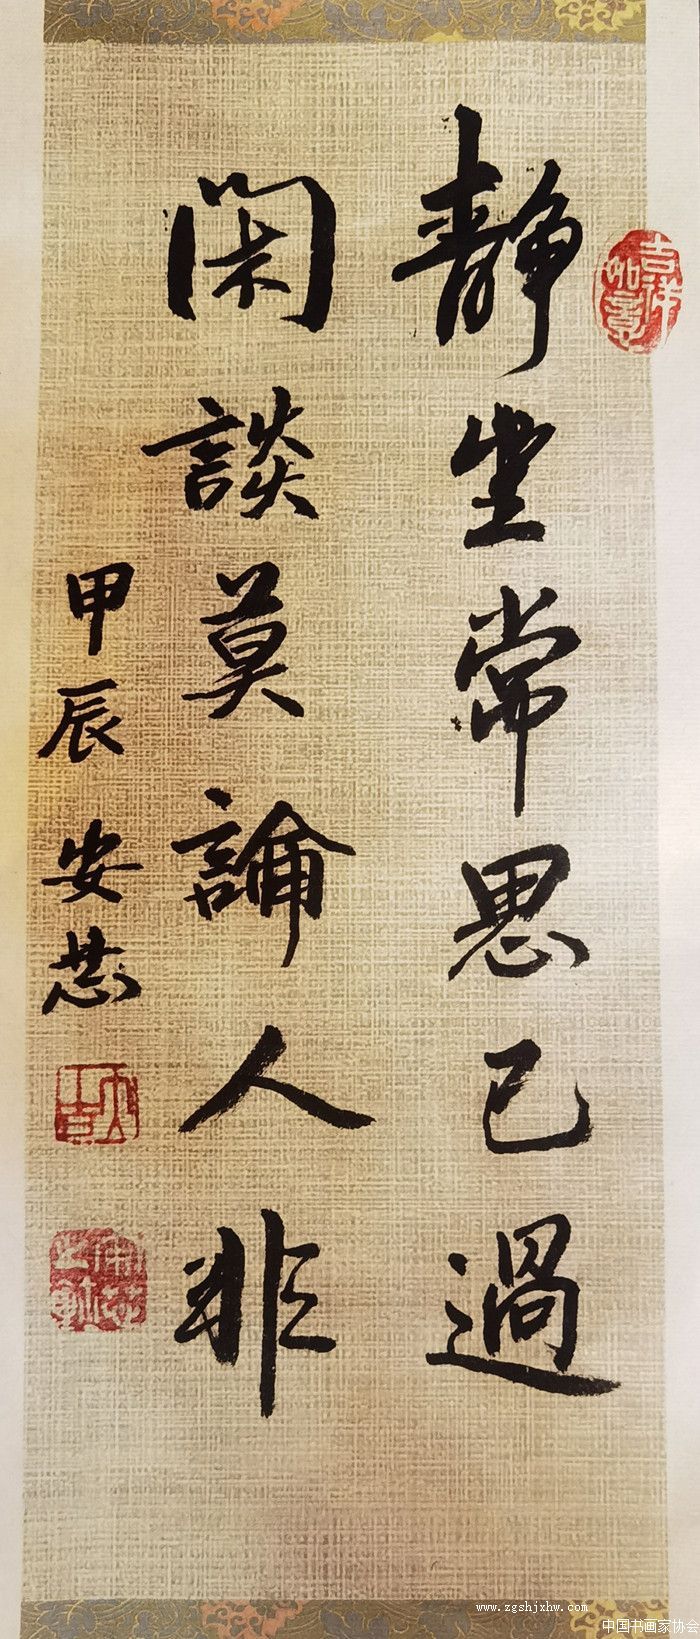 靜坐常思己過
閑談莫論人非
甲辰 安慈
吉祥如意
www.zgshjxhw.com
中国书画家协会